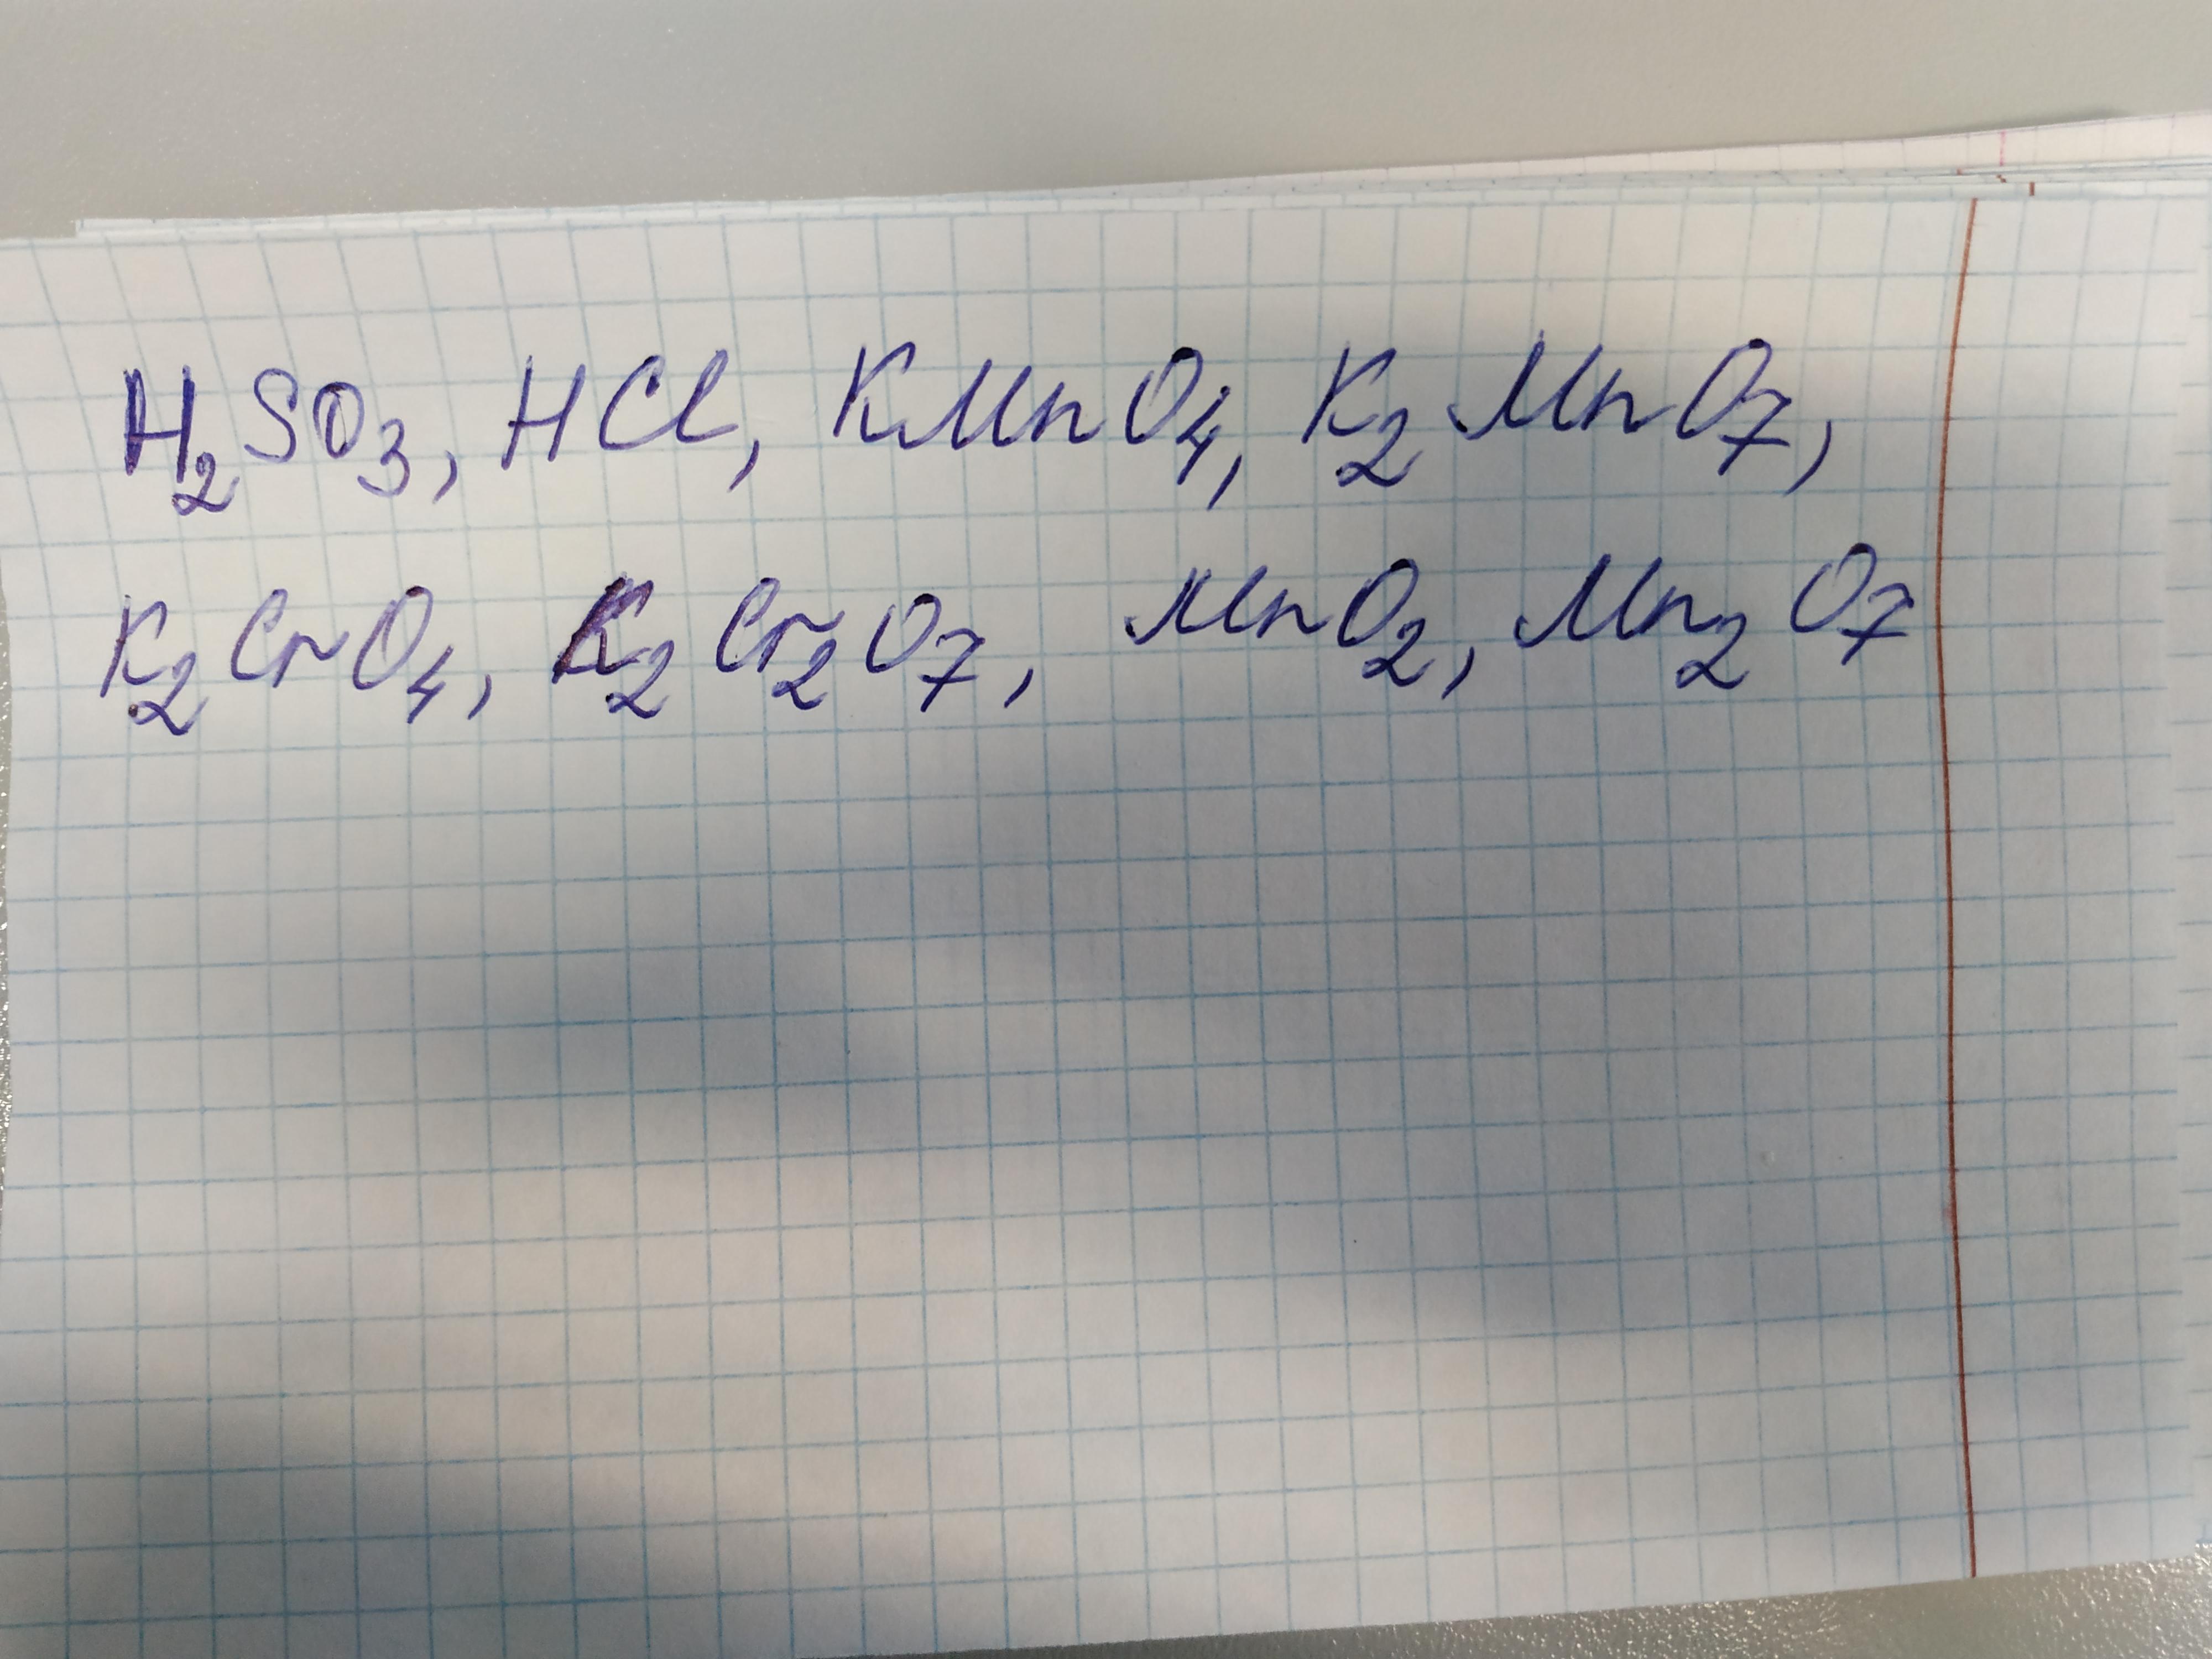 H₂SO₃, HCl, KMnO₄, K₂MnO₇,
K₂CrO₄, K₂Cr₂O₇, MnO₂, Mn₂O₇